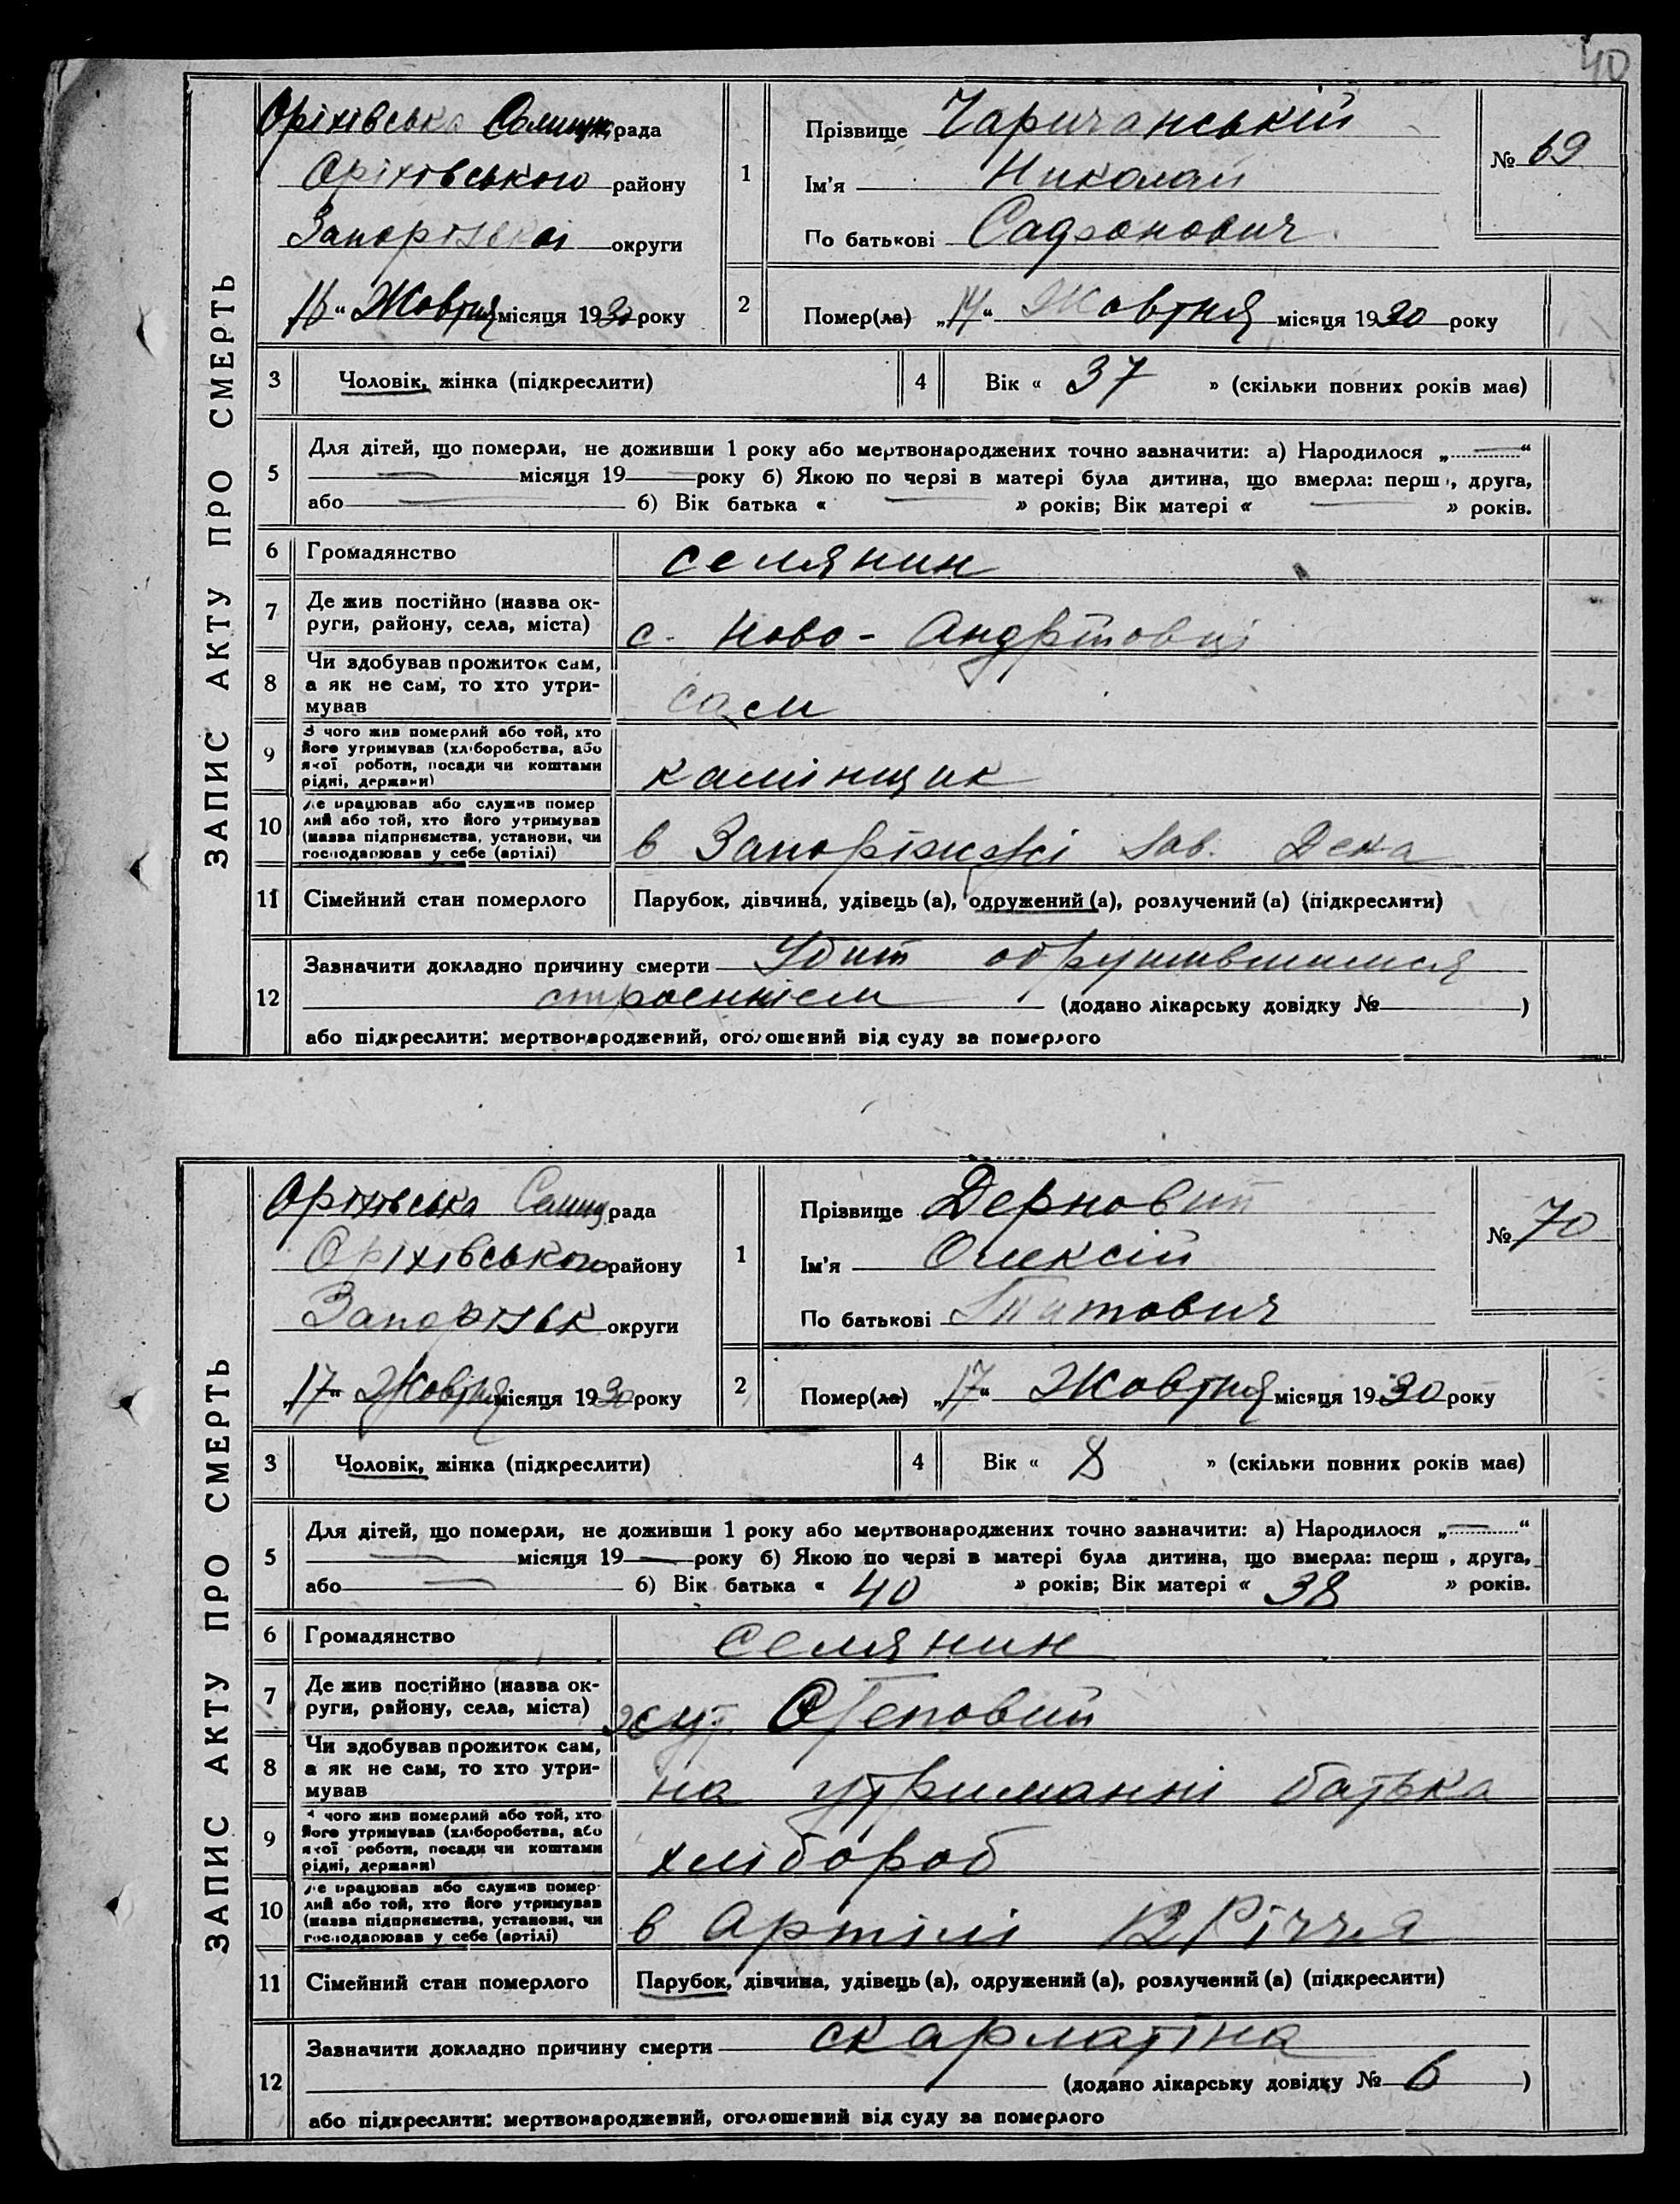 40
ЗАПИС АКТУ ПРО СМЕРТЬ
Оріхівська Селищн рада
Оріхівського району
Запорізької округи
"16" Жовтня місяця 1930 року
1
Прізвище Чаричанській
Ім'я Николай
По батькові Сафонович
№ 69
2
Помер(ла) „14" Жовтня місяця 1930 року
3 Чоловік, жінка (підкреслити)
4 Вік « 37 » (скільки повних років має)
5 Для дітей, що померли, не доживши 1 року або мертвонароджених точно зазначити: а) Народилося „ — "
— місяця 19 — року б) Якою по черзі в матері була дитина, що вмерла: перш , друга,
або — б) Вік батька « — » років; Вік матері « — » років.
6 Громадянство селянин
7 Де жив постійно (назва ок-
руги, району, села, міста) с. Ново-
8 Чи здобував прожиток сам,
а як не сам, то хто утри-
мував сам
9 З чого жив померлий або той, хто
його утримував (хліборобства, або
якої роботи, посади чи коштами
рідні, держави) камінщик
10 Де працював або служив помер
лий або той, хто його утримував
(назва підприємства, установи, чи
господарював у себе (артілі) в Запоріжжі
11 Сімейний стан померлого Парубок, дівчина, удівець (а), одружений (а), розлучений (а) (підкреслити)
12 Зазначити докладно причину смерти Убит обрушившимся
строением (додано лікарську довідку № )
або підкреслити: мертвонароджений, оголошений від суду за померлого
ЗАПИС АКТУ ПРО СМЕРТЬ
Оріхівська Селищ рада
Оріхівського району
Запорізьк округи
„17" Жовтня місяця 1930 року
1
Прізвище Дерновий
Ім'я Олексій
По батькові Титович
№ 70
2
Помер(ла) „17" Жовтня місяця 1930 року
3 Чоловік, жінка (підкреслити)
4 Вік « 8 » (скільки повних років має)
5 Для дітей, що померли, не доживши 1 року або мертвонароджених точно зазначити: а) Народилося „ — "
— місяця 19 — року б) Якою по черзі в матері була дитина, що вмерла: перш , друга,
або — б) Вік батька « 40 » років; Вік матері « 38 » років.
6 Громадянство селянин
7 Де жив постійно (назва ок-
руги, району, села, міста) хут. Степовий
8 Чи здобував прожиток сам,
а як не сам, то хто утри-
мував на утриманні батька
9 З чого жив померлий або той, хто
його утримував (хліборобства, або
якої роботи, посади чи коштами
рідні, держави) хлібороб
10 Де працював або служив помер
лий або той, хто його утримував
(назва підприємства, установи, чи
господарював у себе (артілі) в Артілі 12 Річчя
11 Сімейний стан померлого Парубок, дівчина, удівець (а), одружений (а), розлучений (а) (підкреслити)
12 Зазначити докладно причину смерти скарлатіна
(додано лікарську довідку № 6 )
або підкреслити: мертвонароджений, оголошений від суду за померлого